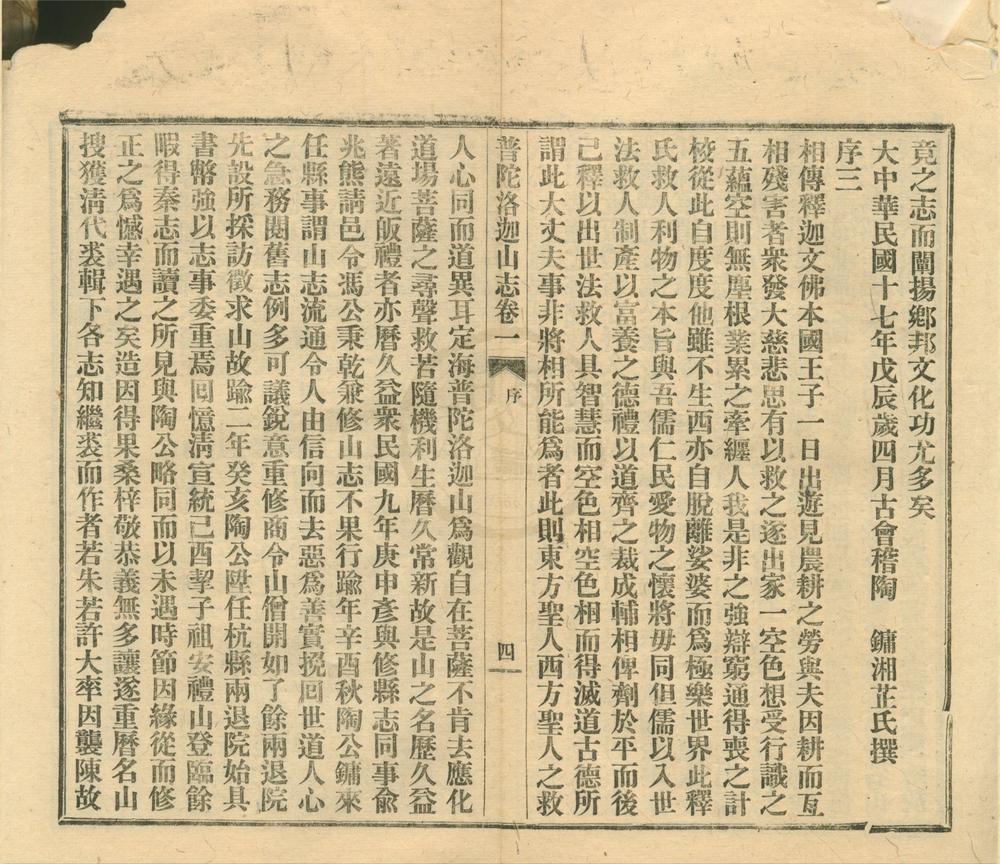 竟之志而闡揚鄉邦文化功尤多矣
大中華民國十七年戊辰歲四月古會稽陶　鏞湘芷氏撰
序三
相傳釋迦文佛本國王子一日出遊見農耕之勞與夫因耕而互
相殘害者衆發大慈悲思有以救之遂出家一空色想受行識之
五蘊空則無塵根業累之牽纏人我是非之強辯窮通得喪之計
校從此自度度他雖不生西亦自脫離娑婆而爲極樂世界此釋
氏救人利物之本旨與吾儒仁民愛物之懷將毋同但儒以入世
法救人制產以富養之德禮以道齊之裁成輔相俾劑於平而後
已釋以出世法救人具智慧而空色相空色相而得滅道古德所
謂此大丈夫事非將相所能爲者此則東方聖人西方聖人之救
普陀洛迦山志卷一　序　四
人心同而道異耳定海普陀洛迦山爲觀自在菩薩不肯去應化
道場菩薩之尋聲救苦隨機利生曆久常新故是山之名歷久益
著遠近皈禮者亦曆久益衆民國九年庚申彥與修縣志同事兪
兆熊請邑令馮公秉乾兼修山志不果行踰年辛酉秋陶公鏞來
任縣事謂山志流通令人由信向而去惡爲善實挽回世道人心
之急務閱舊志例多可議銳意重修商令山僧開如了餘兩退院
先設所採訪徵求山故踰二年癸亥陶公陞任杭縣兩退院始具
書幣強以志事委重焉回憶淸宣統己酉挈子祖安禮山登臨餘
暇得秦志而讀之所見與陶公略同而以未遇時節因緣從而修
正之爲憾幸遇之矣造因得果桑梓敬恭義無多讓遂重曆名山
搜獲淸代裘輯下各志知繼裘而作者若朱若許大率因襲陳故